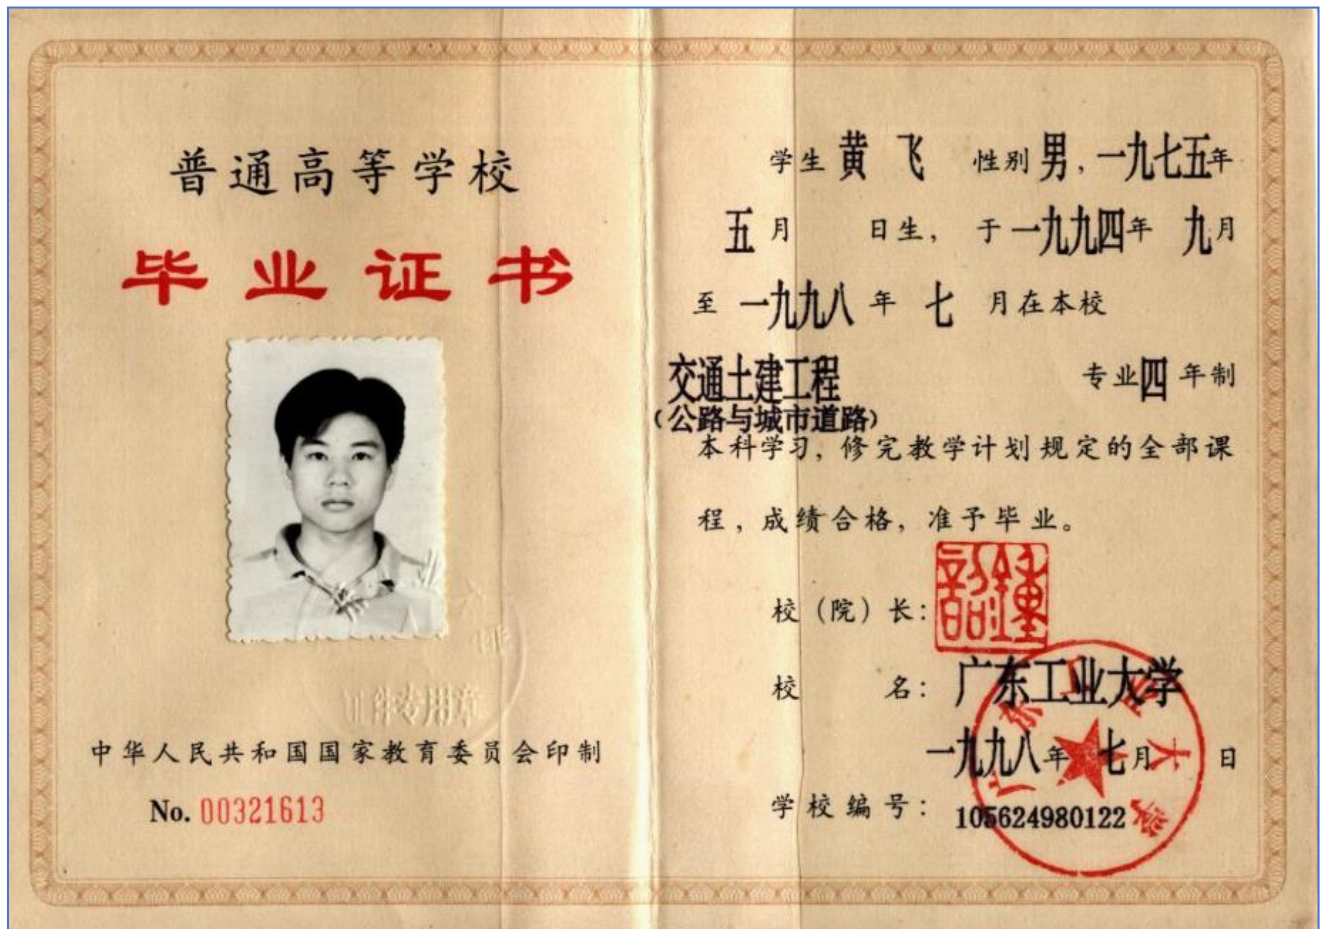 普通高等学校
毕业证书
证件专用章
中华人民共和国国家教育委员会印制
No. 00321613
学生 黄 飞 性别 男，一九七五年
五月 日生，于一九九四年 九月
至 一九九八 年 七 月在本校
交通土建工程 专业四 年制
（公路与城市道路）
本科学习，修完教学计划规定的全部课
程，成绩合格，准予毕业。
校（院）长：
校 名：广东工业大学
一九九八年 七月 日
学校编号：105624980122
广东工业大学